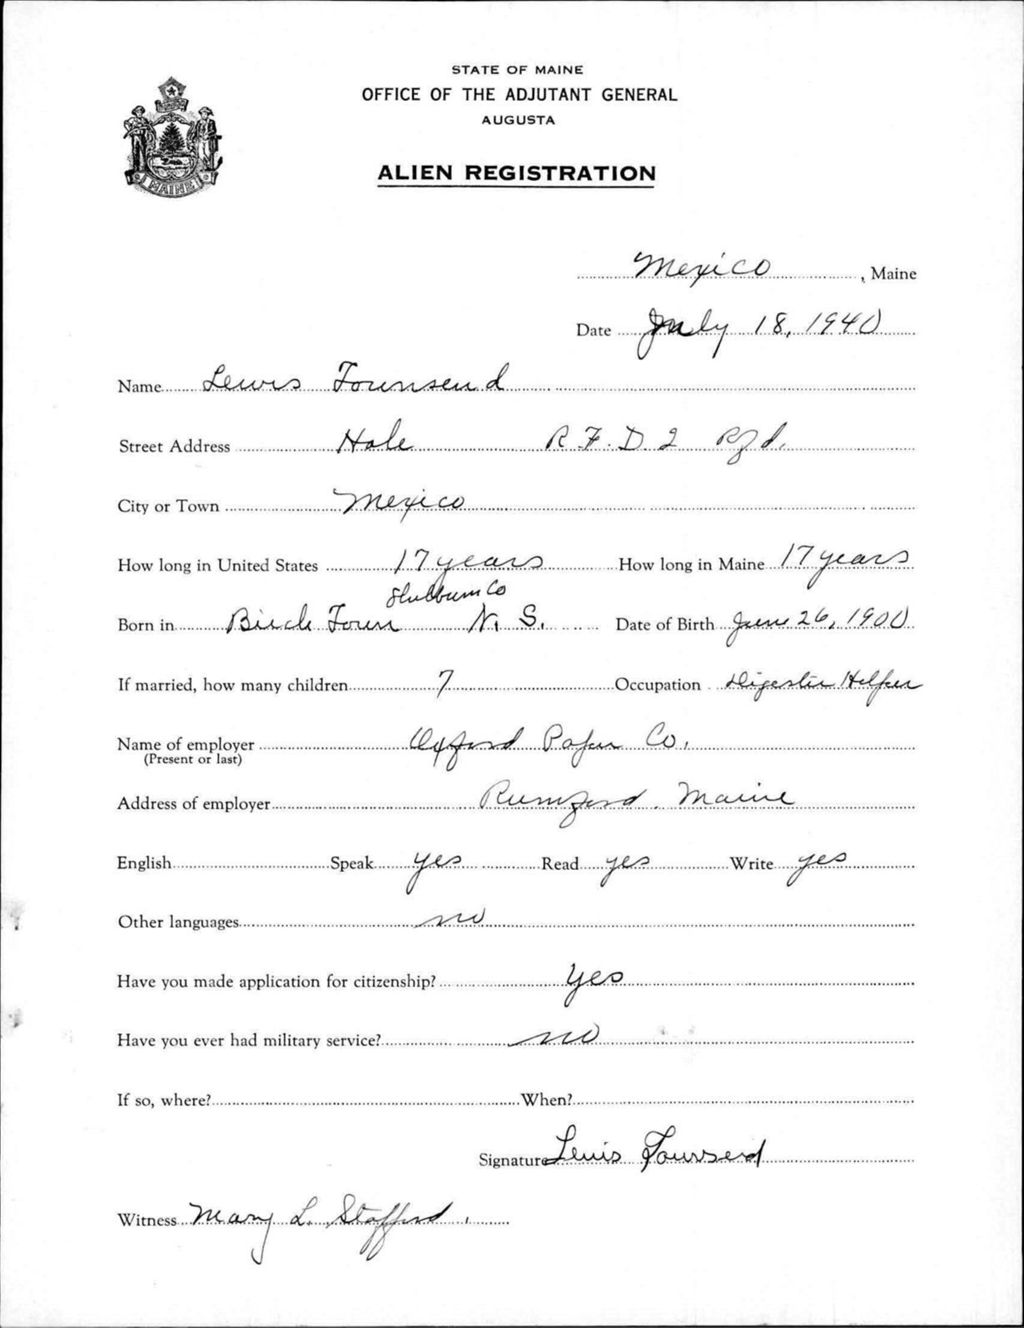 STATE OF MAINE
OFFICE OF THE ADJUTANT GENERAL
AUGUSTA
ALIEN REGISTRATION
MAINE
Mexico, Maine
Date July 18, 1940
Name Lewis Townsend
Street Address Hale R.F.D 2
City or Town Mexico
How long in United States 17 years How long in Maine 17 years
Co
Born in Birch Town N. S. Date of Birth June 26, 1900
If married, how many children 7 Occupation Digester Helper
Name of employer Oxford Paper Co.
(Present or last)
Address of employer Rumford. Maine
English Speak yes Read yes Write yes
Other languages no
Have you made application for citizenship? Yes
Have you ever had military service? no
If so, where? When?
Signature Lewis Townsend
Witness Mary L. Stafford.